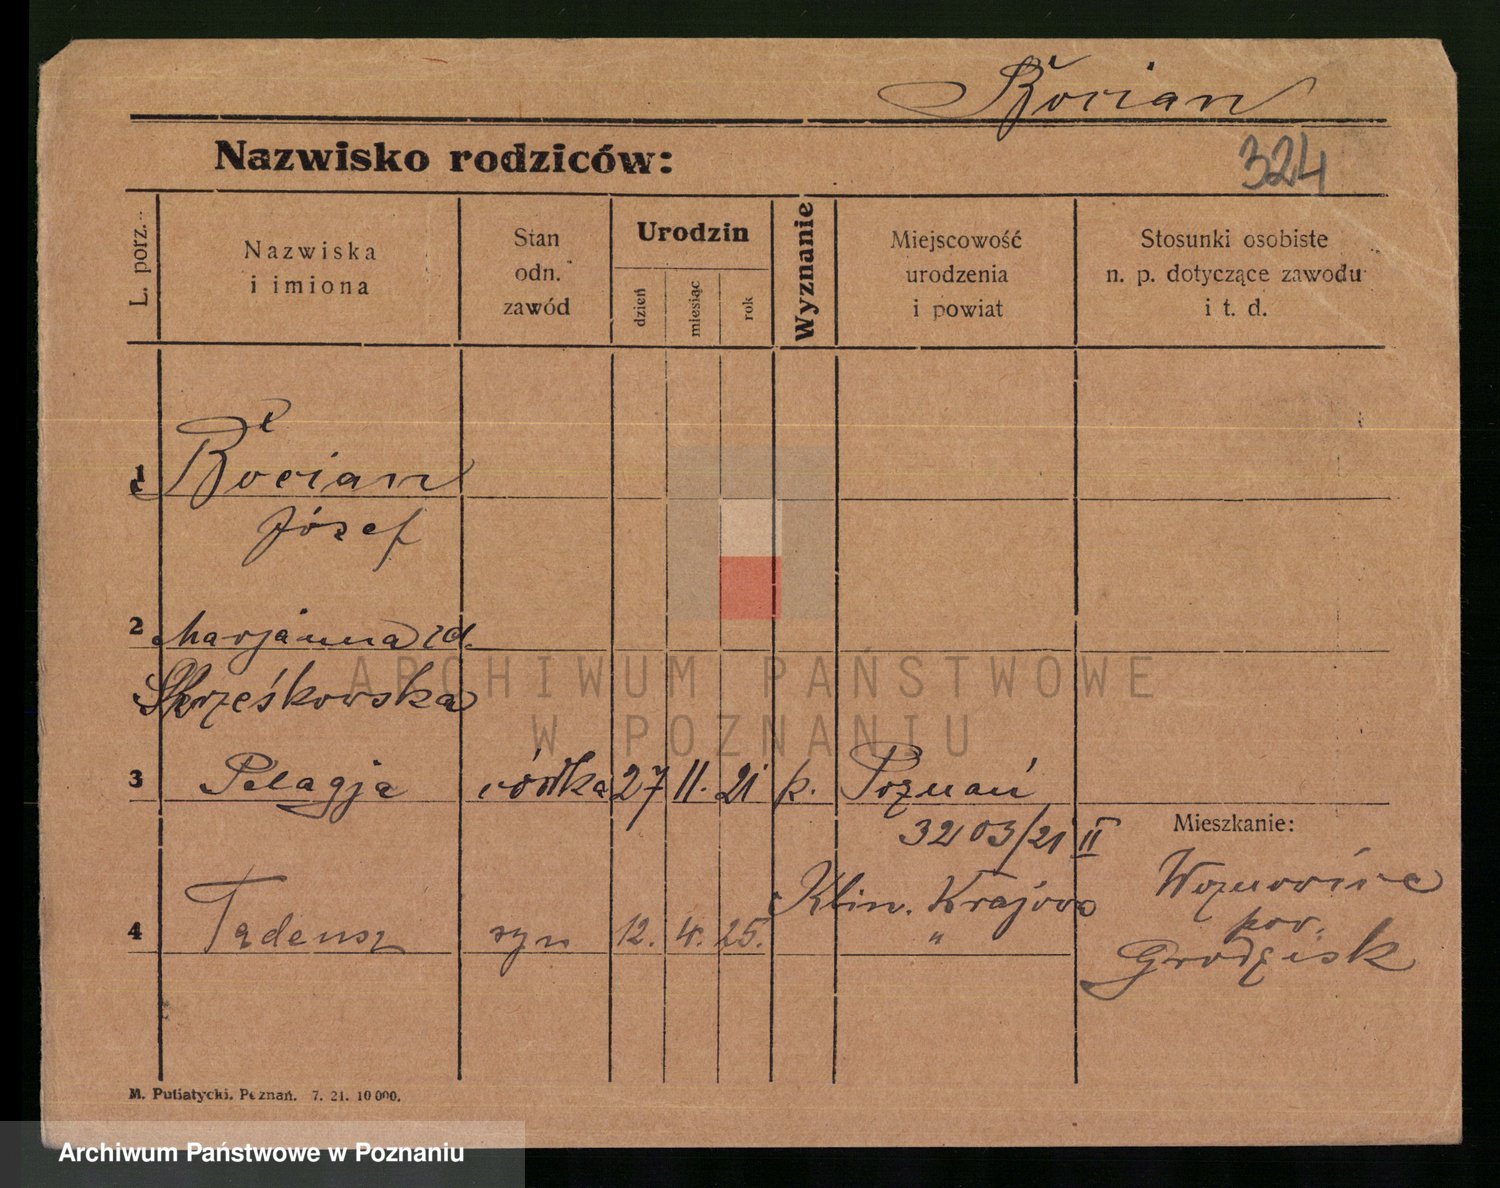 Bocian
324
Nazwisko rodziców:
L. porz.
Nazwiska
i imiona
Stan
odn.
zawód
Urodzin
dzień
miesiąc
rok
Wyznanie
Miejscowość
urodzenia
i powiat
Stosunki osobiste
n. p. dotyczące zawodu
i t. d.
1 Bocian
Józef
2 Marjanna zd.
3 Pelagja córka 27 11. 21 k. Poznań
3203/21 II
Mieszkanie:
4 Tadeusz syn 12. 4. 25. "
pow.
Grodzisk
M. Putiatycki, Poznań. 7. 21. 10000.
ARCHIWUM PAŃSTWOWE
W POZNANIU
Archiwum Państwowe w Poznaniu